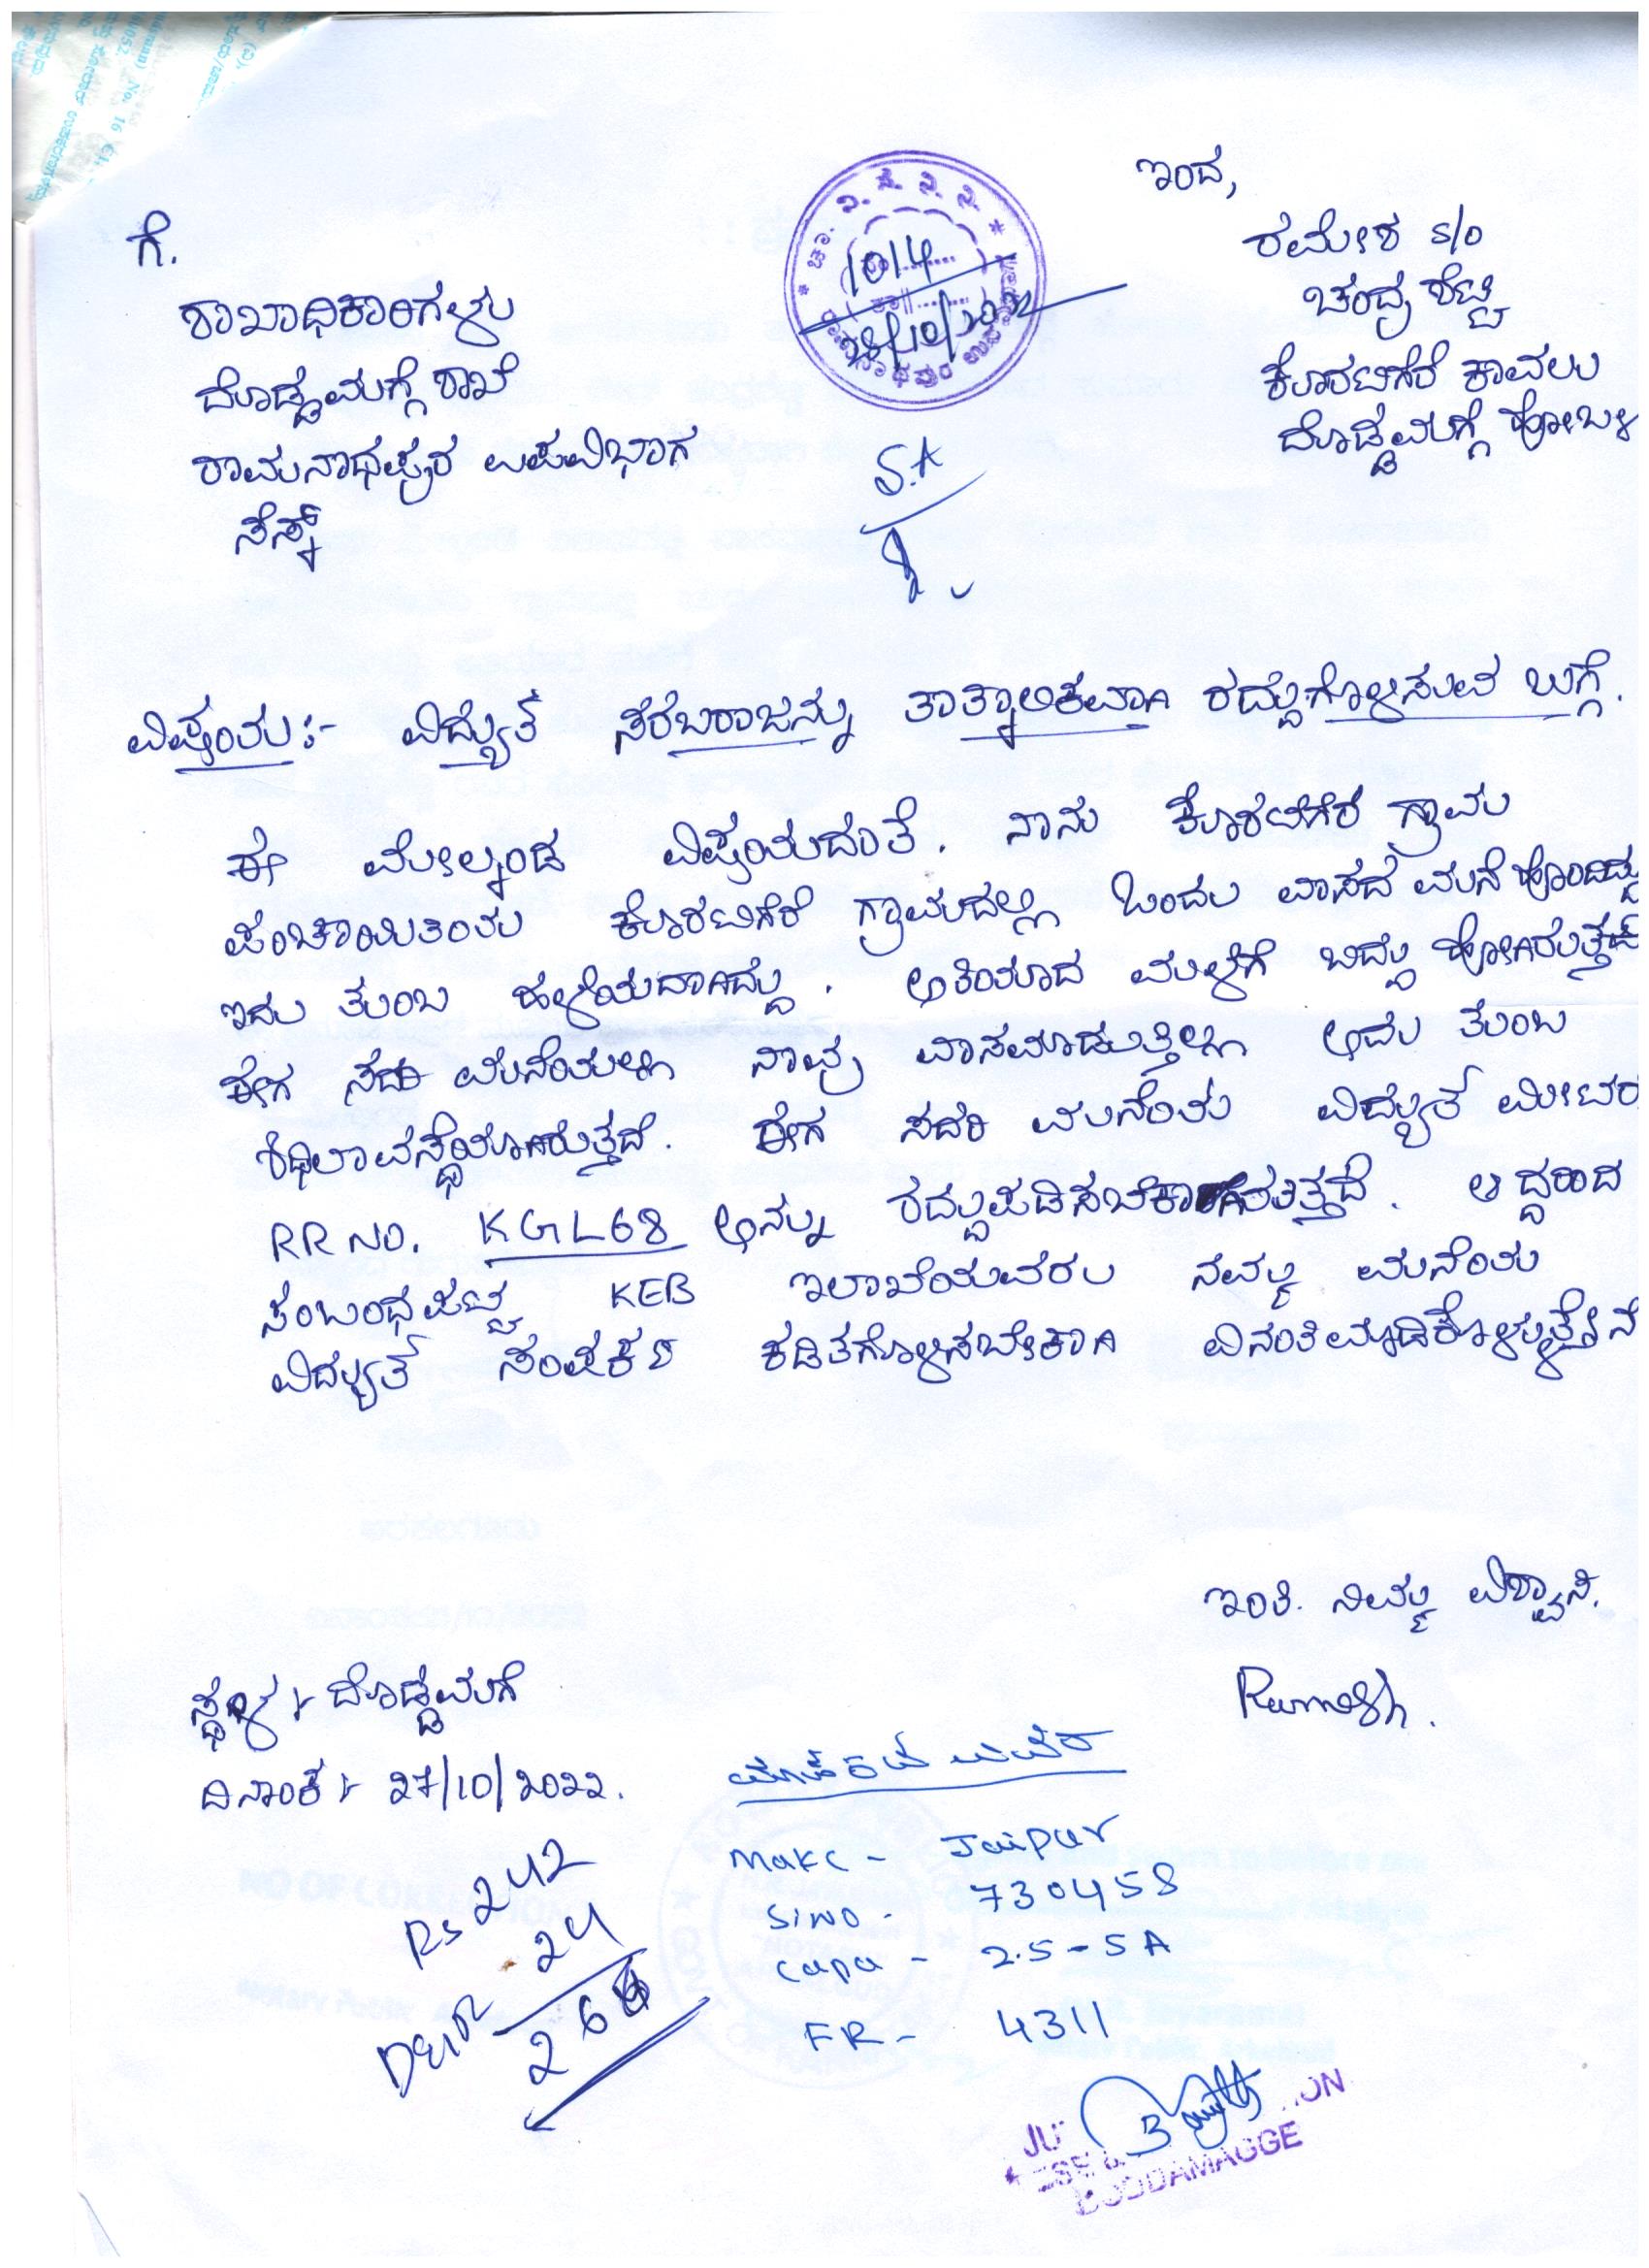 ಇಂದ,
ರಮೇಶ s/o
ಚಂದ್ರಶೆಟ್ಟಿ
ಕೊರಟಿಗೆರೆ ಕಾವಲು
ದೊಡ್ಡಮಗ್ಗೆ ಹೋಬಳಿ
ಗೆ.
ಶಾಖಾಧಿಕಾರಿಗಳು
ದೊಡ್ಡಮಗ್ಗೆ ಶಾಖೆ
ರಾಮನಾಥಪುರ ಉಪವಿಭಾಗ
ಸೆಸ್ಕ್
1014
28/10/2022
S.A
ವಿಷಯ:- ವಿದ್ಯುತ್ ಸರಬರಾಜನ್ನು ತಾತ್ಕಾಲಿಕವಾಗಿ ರದ್ದುಗೊಳಿಸುವ ಬಗ್ಗೆ.
ಈ ಮೇಲ್ಕಂಡ ವಿಷಯದಂತೆ. ನಾನು ಕೊರಟಿಗೆರೆ ಗ್ರಾಮ
ಪಂಚಾಯಿತಿಯ ಕೊರಟಿಗೆರೆ ಗ್ರಾಮದಲ್ಲಿ ಒಂದು ವಾಸದ ಮನೆ ಹೊಂದಿದ್ದು
ಇದು ತುಂಬ ಹಳೆಯದಾಗಿದ್ದು. ಅತಿಯಾದ ಮಳೆಗೆ ಬಿದ್ದು ಹೋಗಿರುತ್ತದೆ
ಈಗ ಸದರಿ ಮನೆಯಲ್ಲಿ ನಾವು ವಾಸಮಾಡುತ್ತಿಲ್ಲ ಅದು ತುಂಬ
ಶಿಥಿಲಾವಸ್ಥೆಯಾಗಿರುತ್ತದೆ. ಈಗ ಸದರಿ ಮನೆಯ ವಿದ್ಯುತ್ ಮೀಟರ್
RR NO. KGL68 ಅನ್ನು ರದ್ದುಪಡಿಸಬೇಕಾಗಿರುತ್ತದೆ. ಆದ್ದರಿಂದ
ಸಂಬಂಧಪಟ್ಟ KEB ಇಲಾಖೆಯವರು ನಮ್ಮ ಮನೆಯ
ವಿದ್ಯುತ್ ಸಂಪರ್ಕ ಕಡಿತಗೊಳಿಸಬೇಕಾಗಿ ವಿನಂತಿಮಾಡಿಕೊಳ್ಳುತ್ತೇನೆ
ಇಂತಿ. ನಿಮ್ಮ ವಿಶ್ವಾಸಿ.
Ramesh.
ಸ್ಥಳ :- ದೊಡ್ಡಮಗೆ
ದಿನಾಂಕ :- 27/10/2022.
Make - Jaipur
SINO - 730458
Capa - 2.5-5A
FR - 4311
Rs 242
24
266
DODDAMAGGE